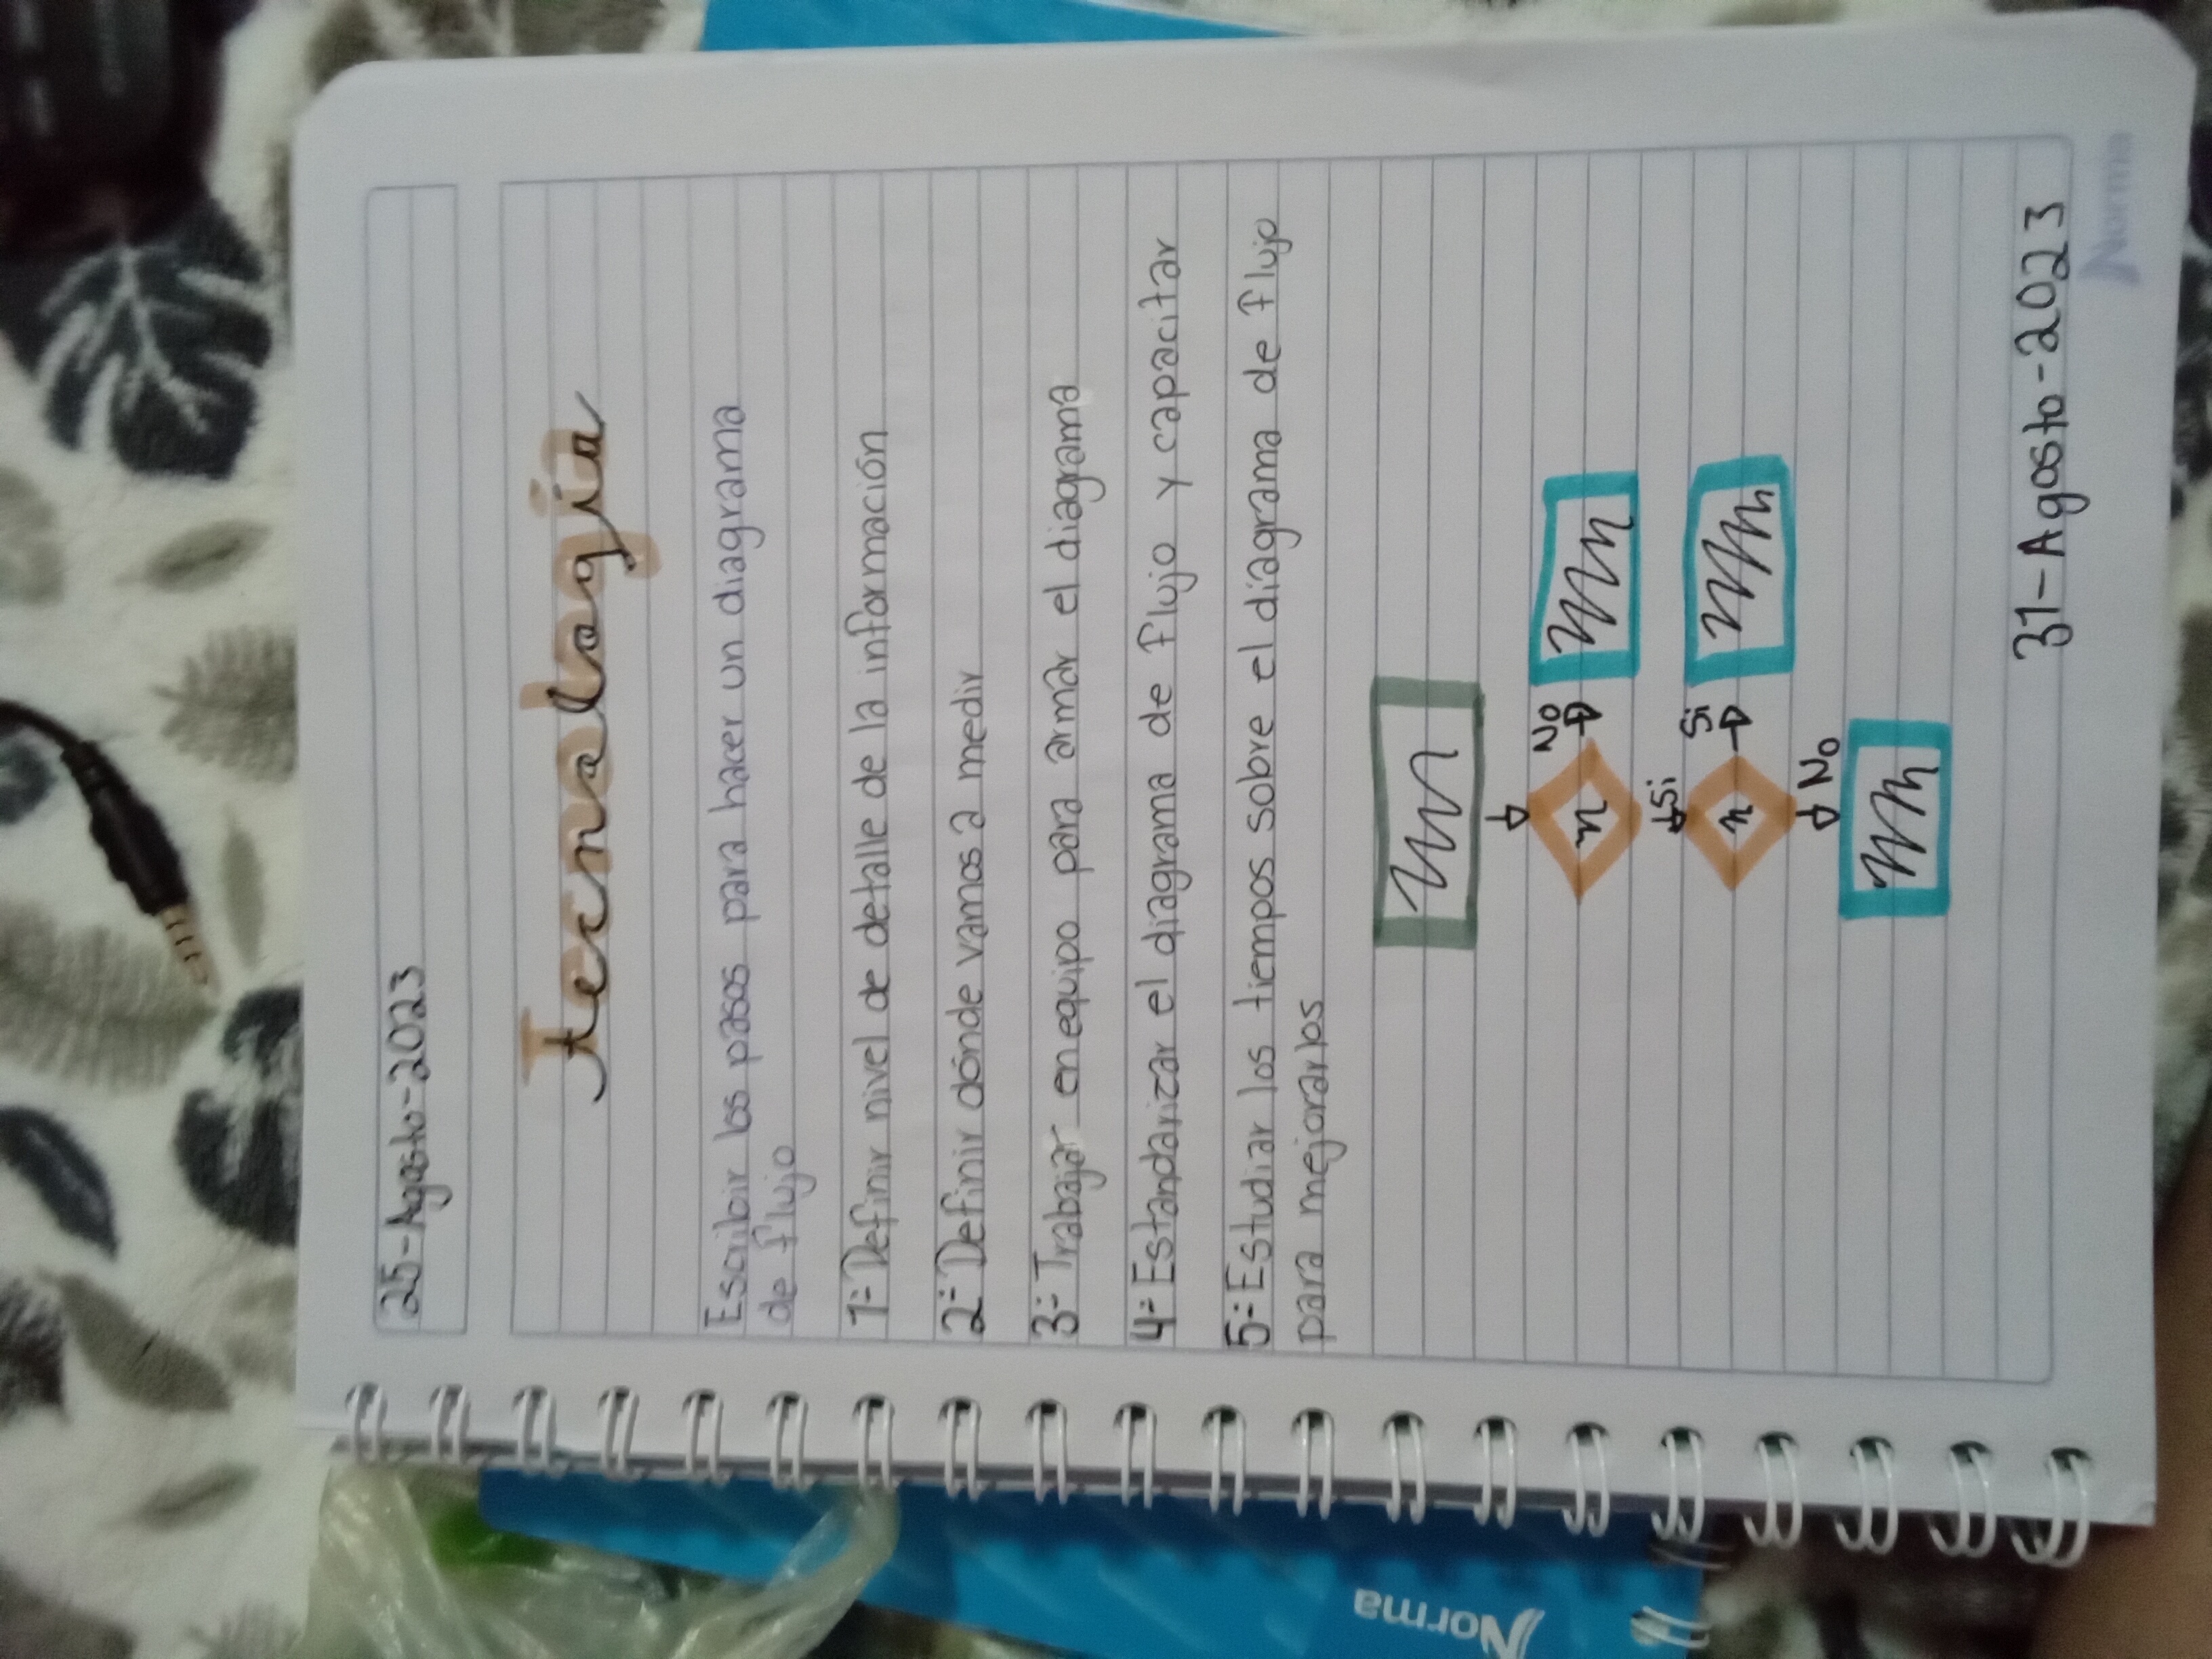 25-Agosto-2023
Tecnología
Escribir los pasos para hacer un diagrama
de flujo
1=Definir nivel de detalle de la información
2=Definir dónde vamos a medir
3=Trabajar en equipo para armar el diagrama
4=Estandarizar el diagrama de flujo y capacitar
5=Estudiar los tiempos sobre el diagrama de flujo
para mejorarlos
No
Si
Si
No
31-Agosto-2023
Norma
Norma